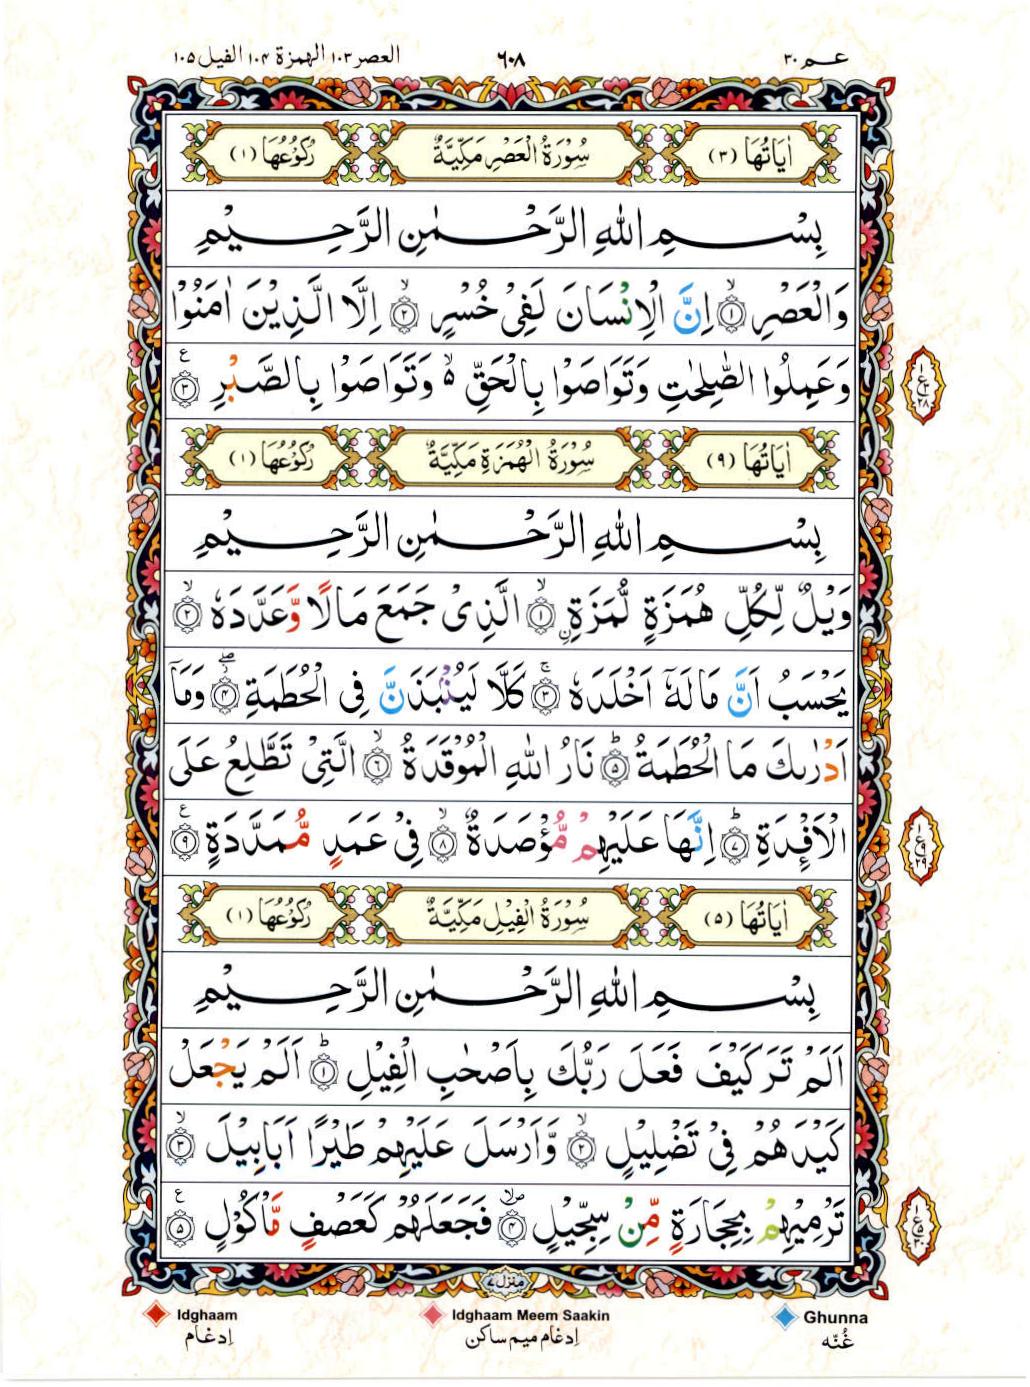 عـم ٣٠ ٦٠٨ العصر ١٠٣ الهمزة ١٠٤ الفيل ١٠٥
اٰيَاتُهَا (٣) سُوْرَةُ الْعَصْرِ مَكِّيَّةٌ رُكُوْعُهَا (١)
بِسْمِ اللّٰهِ الرَّحْمٰنِ الرَّحِيْمِ
وَالْعَصْرِ ۙ‏﴿۱﴾ اِنَّ الْاِنْسَانَ لَفِىْ خُسْرٍ ۙ‏﴿۲﴾ اِلَّا الَّذِيْنَ اٰمَنُوْا
وَعَمِلُوا الصّٰلِحٰتِ وَتَوَاصَوْا بِالْحَقِّ ۙ۬ وَتَوَاصَوْا بِالصَّبْرِ ﴿۳﴾ ع
اٰيَاتُهَا (٩) سُوْرَةُ الْهُمَزَةِ مَكِّيَّةٌ رُكُوْعُهَا (١)
بِسْمِ اللّٰهِ الرَّحْمٰنِ الرَّحِيْمِ
وَيْلٌ لِّكُلِّ هُمَزَةٍ لُّمَزَةِ ۙ‏﴿۱﴾ ۨالَّذِىْ جَمَعَ مَالًا وَّعَدَّدَهٗ ۙ‏﴿۲﴾
يَحْسَبُ اَنَّ مَالَهٗۤ اَخْلَدَهٗ‌ ۚ‏﴿۳﴾ كَلَّا‌ لَيُنْۢبَذَنَّ فِى الْحُطَمَةِ ۖ‏﴿۴﴾ وَمَاۤ
اَدْرٰٮكَ مَا الْحُطَمَةُ ؕ‏﴿۵﴾ نَارُ اللّٰهِ الْمُوْقَدَةُ ۙ‏﴿۶﴾ الَّتِىْ تَطَّلِعُ عَلَى
الْاَفْـِٕدَةِ ؕ‏﴿۷﴾ اِنَّهَا عَلَيْهِمْ مُّؤْصَدَةٌ ۙ‏﴿۸﴾ فِىْ عَمَدٍ مُّمَدَّدَةٍ ﴿۹﴾ ع
اٰيَاتُهَا (٥) سُوْرَةُ الْفِيْلِ مَكِّيَّةٌ رُكُوْعُهَا (١)
بِسْمِ اللّٰهِ الرَّحْمٰنِ الرَّحِيْمِ
اَلَمْ تَرَ كَيْفَ فَعَلَ رَبُّكَ بِاَصْحٰبِ الْفِيْلِ ؕ‏﴿۱﴾ اَلَمْ يَجْعَلْ
كَيْدَهُمْ فِىْ تَضْلِيْلٍ ۙ‏﴿۲﴾ وَّاَرْسَلَ عَلَيْهِمْ طَيْرًا اَبَابِيْلَ ۙ‏﴿۳﴾
تَرْمِيْهِمْ بِحِجَارَةٍ مِّنْ سِجِّيْلٍ ۙ‏﴿۴﴾ فَجَعَلَهُمْ كَعَصْفٍ مَّاْكُوْلٍ ﴿۵﴾ ع
منزل ٧
Idghaam Idghaam Meem Saakin Ghunna
اِدغام اِدغام میم ساکن غُنّہ